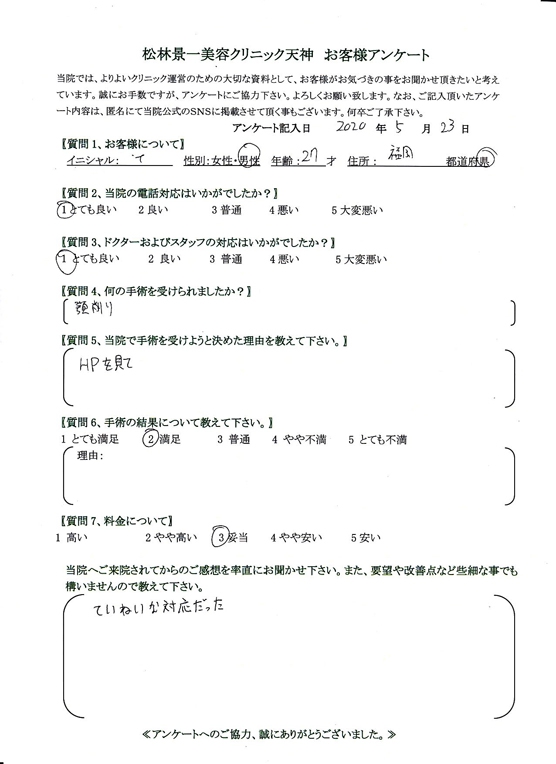 松林景一美容クリニック天神　お客様アンケート
当院では、よりよいクリニック運営のための大切な資料として、お客様がお気づきの事をお聞かせ頂きたいと考え
ています。誠にお手数ですが、アンケートにご協力下さい。よろしくお願い致します。なお、ご記入頂いたアンケ
ート内容は、匿名にて当院公式のSNSに掲載させて頂く事もございます。何卒ご了承下さい。
アンケート記入日　2020 年 5 月 23 日
〖質問1、お客様について〗
イニシャル：　性別:女性・男性　年齢：27 才　住所：福岡　都道府県
〖質問2、当院の電話対応はいかがでしたか？〗
1 とても良い　2 良い　3 普通　4 悪い　5 大変悪い
〖質問3、ドクターおよびスタッフの対応はいかがでしたか？〗
1 とても良い　2 良い　3 普通　4 悪い　5 大変悪い
〖質問4、何の手術を受けられましたか？〗
顎削り
〖質問5、当院で手術を受けようと決めた理由を教えて下さい。〗
HPを見て
〖質問6、手術の結果について教えて下さい。〗
1 とても満足　2 満足　3 普通　4 やや不満　5 とても不満
理由：
〖質問7、料金について〗
1 高い　2 やや高い　3 妥当　4 やや安い　5 安い
当院へご来院されてからのご感想を率直にお聞かせ下さい。また、要望や改善点など些細な事でも
構いませんので教えて下さい。
ていねいな対応だった
≪アンケートへのご協力、誠にありがとうございました。≫